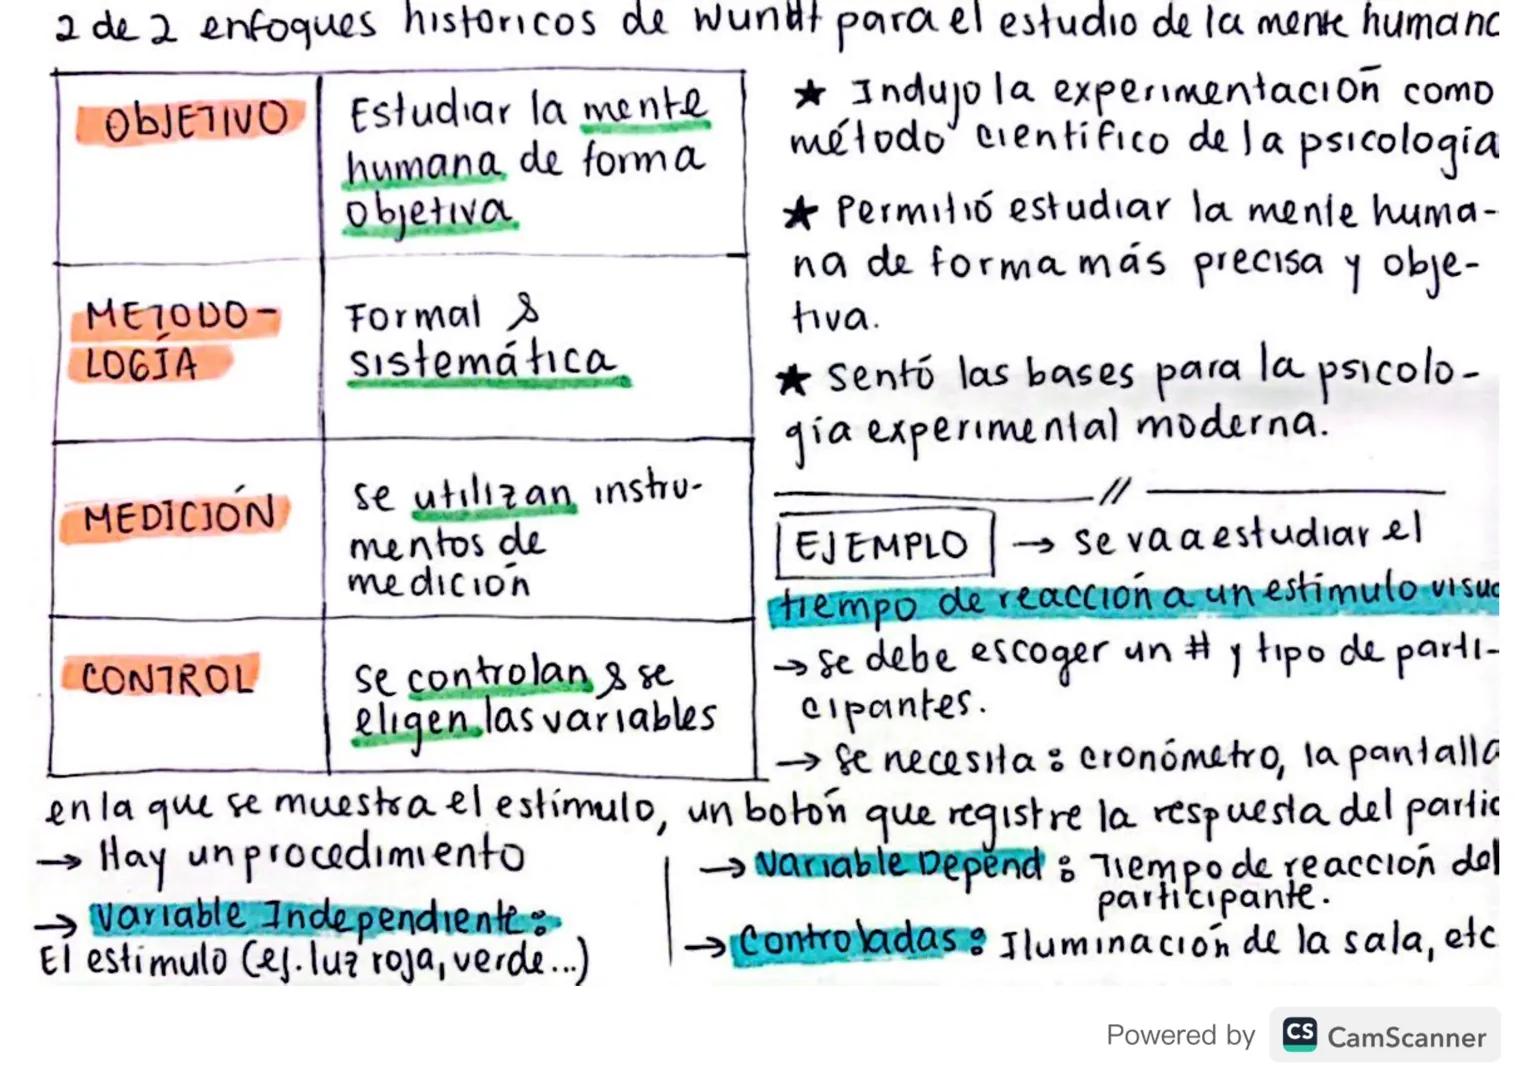 2 de 2 enfoques históricos de Wundt para el estudio de la mente humana
OBJETIVO
Estudiar la mente
humana de forma
objetiva
METODO-
LOGÍA
Formal &
sistemática
MEDICIÓN
se utilizan instru-
mentos de
medición
CONTROL
se controlan & se
eligen las variables
★ Indujo la experimentación como
método científico de la psicología
★ Permitió estudiar la mente huma-
na de forma más precisa y obje-
tiva.
★ Sentó las bases para la psicolo-
gía experimental moderna.
//
EJEMPLO → se va a estudiar el
tiempo de reacción a un estímulo visua
→ Se debe escoger un # y tipo de parti-
cipantes.
→ Se necesita: cronómetro, la pantalla
en la que se muestra el estímulo, un botón que registre la respuesta del partic
→ Hay un procedimiento
→ Variable Independiente:
El estímulo (ej. luz roja, verde...)
→ Variable Depend: Tiempo de reacción del
participante.
→ Controladas: Iluminación de la sala, etc
Powered by CS CamScanner